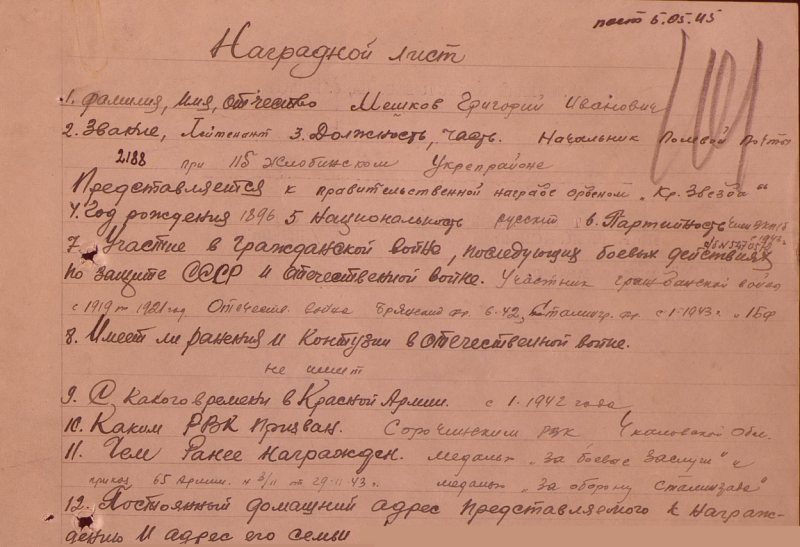 пост 5.05.45
Наградной лист
1. Фамилия, имя, отчество Мешков Григорий Иванович
2. Звание, Лейтенант 3. Должность, часть. Начальник Полевой почты
2188 при 115 Жлобинском Укрепрайоне
Представляется к правительственной награде орденом „Кр. Звезда"
4. Год рождения 1896 5 Национальность русский 6. Партийность
7. Участие в гражданской войне, последующих боевых действиях
по защите СССР и отечественной войне. Участник гражданской войны
с 1919 по 1921 год Отечеств. война Брянский фр. 6-42, Сталингр. фр. с 1-1943г. 1БФ
8. Имеет ли ранения и контузии в отечественной войне.
не имеет
9. С какого времени в Красной Армии. с 1-1942 года
10. Каким РВК Призван. Сорочинским РВК Чкаловской Обл.
11. Чем Ранее Награжден. медалью „За боевые заслуги" и
приказ 65 Армии. н 3/н от 29-11-43г. медалью „За оборону Сталинграда"
12. Постоянный домашний адрес представляемого к награж-
дению и адрес его семьи